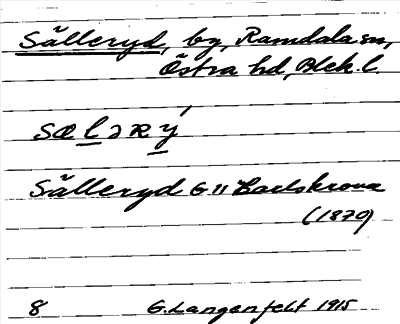 Sälleryd, by, Ramdala sn,
Östra hd, Blek. l.
sælɘRý
Sälleryd G 11 Carlskrona
(1870)
8 G. Langenfelt 1915